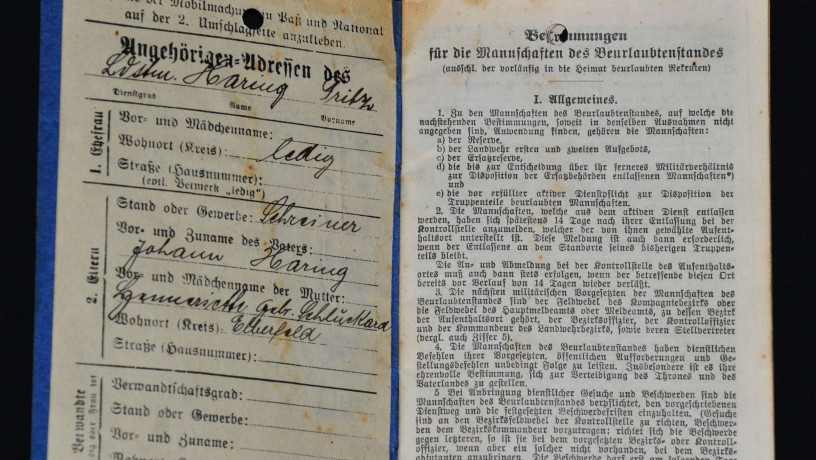 der Mobilmachung zu Paß und National
auf der 2. Umschlagseite anzukleben.
Angehörigen-Adressen des
Ldstm. Häring Fritz
Dienstgrad Name Vorname
1. Ehefrau
Vor- und Mädchenname:
Wohnort (Kreis): ledig
Straße (Hausnummer):
(evtl. Vermerk „ledig")
2. Eltern
Stand oder Gewerbe: Schreiner
Vor- und Zuname des Vaters:
Johann Häring
Vor- und Mädchenname der Mutter:
geb. Schluckard
Wohnort (Kreis): Elberfeld
Straße (Hausnummer):
Verwandte
Verwandtschaftsgrad:
Stand oder Gewerbe:
Vor- und Zuname:
Bestimmungen
für die Mannschaften des Beurlaubtenstandes
(ausschl. der vorläufig in die Heimat beurlaubten Rekruten)
I. Allgemeines.
1. Zu den Mannschaften des Beurlaubtenstandes, auf welche die
nachstehenden Bestimmungen, soweit in denselben Ausnahmen nicht
angegeben sind, Anwendung finden, gehören die Mannschaften:
a) der Reserve,
b) der Landwehr ersten und zweiten Aufgebots,
c) der Ersatzreserve,
d) die bis zur Entscheidung über ihr ferneres Militärverhältnis
zur Disposition der Ersatzbehörden entlassenen Mannschaften*)
und
e) die vor erfüllter aktiver Dienstpflicht zur Disposition der
Truppenteile beurlaubten Mannschaften.
2. Die Mannschaften, welche aus dem aktiven Dienst entlassen
werden, haben sich spätestens 14 Tage nach ihrer Entlassung bei der
Kontrollstelle anzumelden, welcher der von ihnen gewählte Aufent-
haltsort unterstellt ist. Diese Meldung ist auch dann erforderlich,
wenn der Entlassene an dem Standorte seines bisherigen Truppen-
teils bleibt.
Die An- und Abmeldung bei der Kontrollstelle des Aufenthalts-
ortes muß auch dann stets erfolgen, wenn der betreffende diesen Ort
bereits vor Verlauf von 14 Tagen wieder verläßt.
3. Die nächsten militärischen Vorgesetzten der Mannschaften des
Beurlaubtenstandes sind der Feldwebel des Kompagniebezirks oder
die Feldwebel des Hauptmeldeamts oder Meldeamts, zu dessen Bezirk
der Aufenthaltsort gehört, der Bezirksoffizier, der Kontrolloffizier
und der Kommandeur des Landwehrbezirks, sowie deren Stellvertreter
(vergl. auch Ziffer 5).
4. Die Mannschaften des Beurlaubtenstandes haben dienstlichen
Befehlen ihrer Vorgesetzten, öffentlichen Aufforderungen und Ge-
stellungsbefehlen unbedingt Folge zu leisten. Insbesondere ist es ihre
ehrenvolle Bestimmung, sich zur Verteidigung des Thrones und des
Vaterlandes zu gestellen.
5 Bei Anbringung dienstlicher Gesuche und Beschwerden sind die
Mannschaften des Beurlaubtenstandes verpflichtet, den vorgeschriebenen
Dienstweg und die festgesetzten Beschwerdefristen einzuhalten. (Gesuche
sind an den Bezirksfeldwebel der Kontrollstelle zu richten, Beschwer-
den dem Bezirkskommandeur vorzutragen; richtet sich die Beschwerde
gegen letzteren, so ist sie bei dem vorgesetzten Bezirks- oder Kontroll-
offizier, wenn aber ein solcher nicht vorhanden, bei dem Bezirks-
adjutanten anzubringen. Die Beschwerde darf erst am folgenden Tage